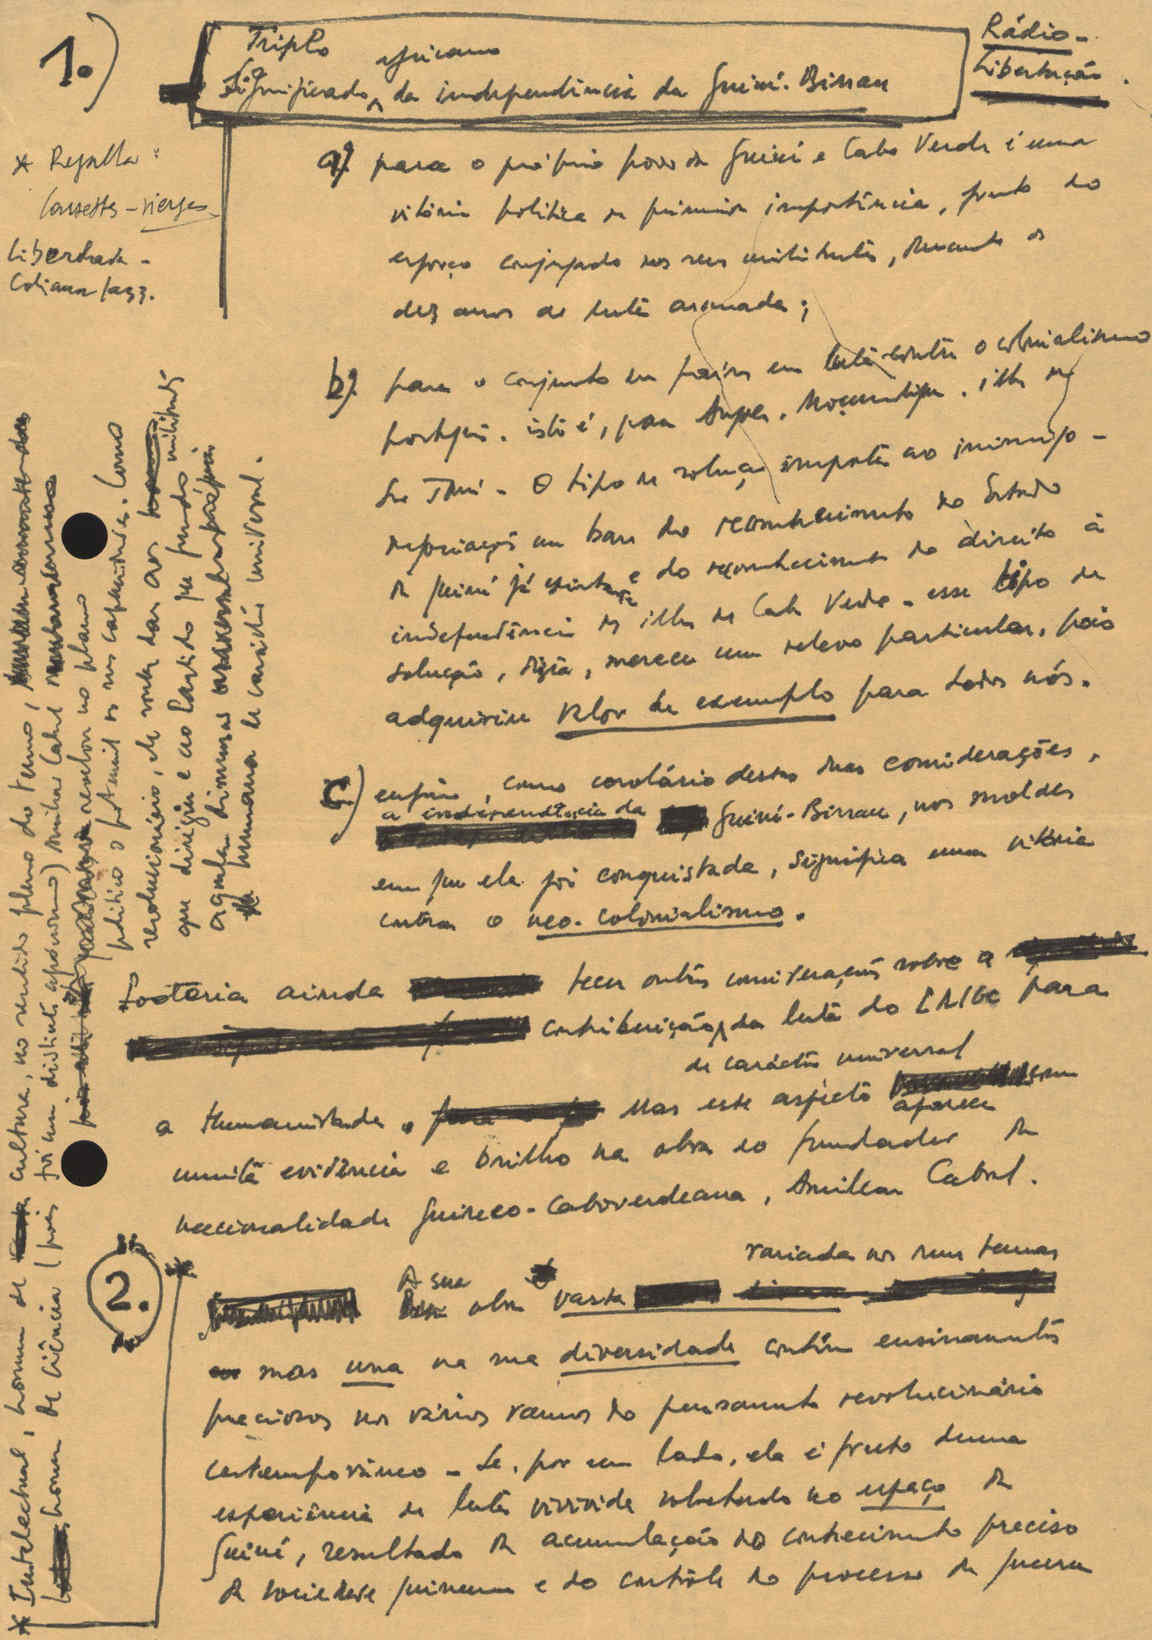 1.)
Triplo
africano
Significado da independência da Guiné-Bissau
Rádio-
Libertação.
* Regalla:
Cassettes-vierges
Liberdade -
a) para o próprio povo da Guiné e Cabo Verde é uma
vitória política de primeira importância, fruto do
esforço conjugado dos seus militantes, durante os
dez anos de luta armada;
b) para o conjunto de países em luta contra o colonialismo
português, isto é, para Angola, Moçambique, ilhas de
São Tomé - O tipo de solução imposta ao inimigo -
negociações na base do reconhecimento do Estado
da Guiné já existente e do reconhecimento do direito à
independência das ilhas de Cabo Verde - esse tipo de
solução, dizia, merece um relevo particular, pois
adquiriu valor de exemplo para todos nós.
c) enfim, como corolário destas duas considerações,
a independência da Guiné-Bissau, nos moldes
em que ela foi conquistada, significa uma vitória
contra o neo-colonialismo.
Gostaria ainda tecer outras considerações sobre a
contribuição da luta do PAIGC para
de carácter universal
a Humanidade. Mas este aspecto aparece com
muita evidência e brilho na obra do fundador da
nacionalidade Guineo-Caboverdeana, Amílcar Cabral.
2.
* A sua obra vasta variada nos seus temas
mas una na sua diversidade contém ensinamentos
preciosos nos vários ramos do pensamento revolucionário
contemporâneo - Se, por um lado, ela é fruto duma
experiência de luta vivida sobretudo no espaço da
Guiné, resultado da acumulação do conhecimento preciso
da sociedade guineense e do contrôle do processo da guerra
* Intelectual, homem de cultura, no sentido pleno do termo,
homem de ciência (pois foi um distinto agrónomo) Amílcar Cabral
revelou no plano
político o potencial das suas capacidades. Como
revolucionário, ele soube dar aos militantes
que dirigiu e ao Partido que fundou
aquela dimensão própria
humana de carácter universal.